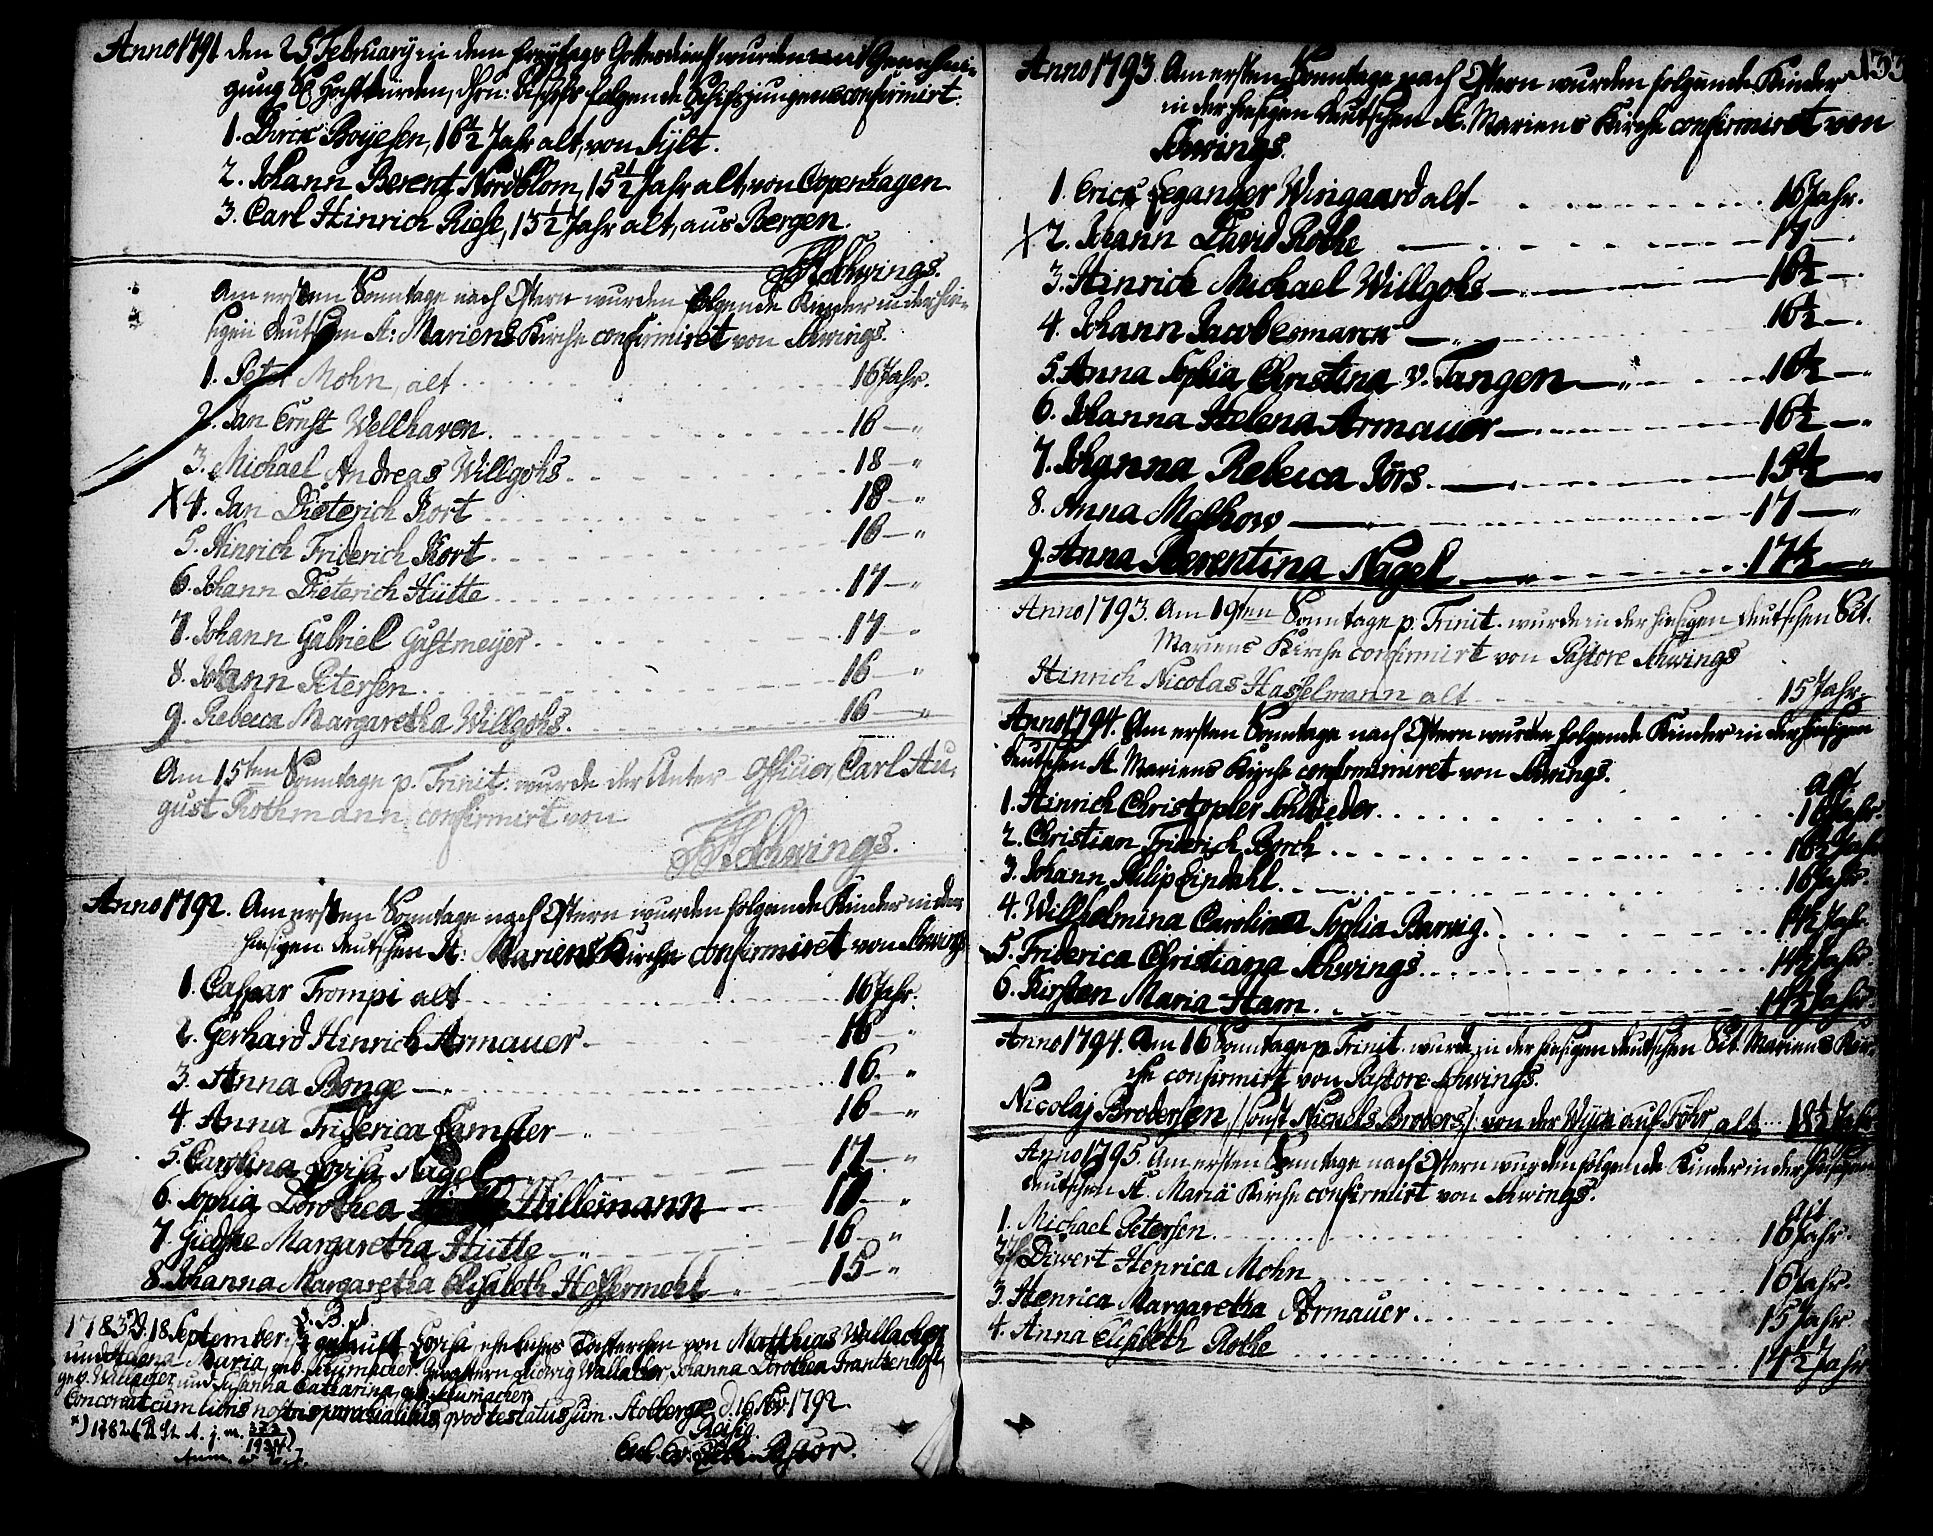 Anno 1791 den 25 February in dem Freytags Gottesdienst wurden mit Genehmi-
gung Hochwürden, Hrn: Bischofs folgende Schiffsjungens confirmirt:
1. Dirck Boyesen, 16½ Jahr alt, von Sylt.
2. Johann Berent Nordblom, 15½ Jahr alt, von Copenhagen.
3. Carl Hinrich Riese, 13½ Jahr alt, aus Bergen.
Schwings.
Am ersten Sonntage nach Ostern wurden folgende Kinder in der hie-
sigen deutschen St: Mariens Kirche confirmiret von Schwings.
1. Peter Mohn, alt 16 Jahr.
2. Jan Ernst Wellhaven. 16 — "
3. Michael Andreas Willgohs. 18 — "
X 4. Jan Dieterich Kort 18 — "
5. Hinrich Friderich Kort. 16 — "
6. Johann Dieterich Hütte 17 — "
7. Johann Gabriel Gastmeyer. 17 — "
8. Johann Petersen. 16 — "
9. Rebecca Margaretha Willgohs. 16 — "
Am 15ten Sonntage p. Trinit: wurde der Unter-Officier, Carl Au-
gust Rothmann confirmirt von
Schwings.
Anno 1792. Am ersten Sonntage nach Ostern wurden folgende Kinder in der
hiesigen deutschen St: Mariens Kirche confirmiret von Schwings
1. Caspar Trompi alt 16 Jahr.
2. Gerhard Hinrich Armauer. 16 — "
3. Anna Bonge 16. — "
4. Anna Friderica Camster 16 — "
5. Carolina Lovisa Nagel 17 — "
6. Sophia Dorothea Hillemann 17 — "
7. Giedske Margaretha Hütte 16 — "
8. Johanna Margaretha Elisabeth Hessermehl 15 — "
1783 d. 18 September, getauft Lovisa, eheliches Töchterchen von Matthias Wallacher
und Helena Maria, geb. Schumacher. Gevattern Ludwig Wallacher, Johanna Dorothea Frantzen
geb. Wallacher und Susanna Catharina, geb. Schumacher
Concordat cum libris nostris parochialibus, quod testatus sum. Stolberg d. 16 Nbr. 1792.
Pastor.
133
Anno 1793. Am ersten Sonntage nach Ostern wurden folgende Kinder
in der hiesigen deutschen St. Mariens Kirche confirmiret von
Schwings.
1. Erick Eganger Wingaard alt 16 Jahr.
X 2. Johann David Rothe 17 — "
3. Hinrich Michael Willgohs 16½ — "
4. Johann Jacob Esmarck 16½ — "
5. Anna Sophia Christina v. Tangen 16½ — "
6. Johanna Helena Armauer 16½ — "
7. Johanna Rebecca Jörs. 15½ — "
8. Anna Melchow 17 — "
9. Anna Berentina Nagel 17½ — "
Anno 1793. Am 19ten Sonntage p. Trinit. wurde in der hiesigen deutschen Sct.
Mariens Kirche confirmirt von Pastore Schwings
Hinrich Nicolas Hasselmann alt 15 Jahr.
Anno 1794. Am ersten Sonntage nach Ostern wurden folgende Kinder in der hiesigen
deutschen St. Mariens Kirche confirmiret von Schwings.
alt
1. Hinrich Christopher Schröder. 16 Jahr.
2. Christian Friderich Borch 16½ Jahr
3. Johann Philip Eindahl. 16 Jahr.
4. Willhelmina Carolina Sophia Barwig. 14½ Jahr.
5. Friderica Christiana Schwings. 14½ Jahr
6. Kirsten Maria Ham. 14½ Jahr.
Anno 1794. Am 16 Sonntage p. Trinit. wurde in der hiesigen deutschen Sct. Mariens Kir-
che confirmirt von Pastore Schwings.
Nicolaj Brodersen /: sonst Nickels Broders :/ von der Wyck auf Föhr, alt 18½ Jahr
Anno 1795. Am ersten Sonntage nach Ostern wurden folgende Kinder in der hiesigen
deutschen St. Mariä Kirche confirmirt von Schwings.
alt
1. Michael Petersen. 16 Jahr.
2. Diwert Henrica Mohn 16 Jahr.
3. Henrica Margaretha Armauer. 15 Jahr
4. Anna Elisabeth Rothe 14½ Jahr